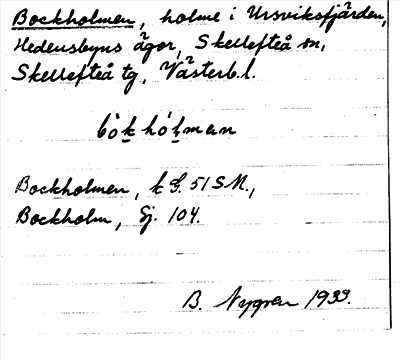 Bockholmen, holme i Ursviksfjärden,
Hedensbyns ägor, Skellefteå sn,
Skellefteå tg, Västerb. l.
bòkhólman
Bockholmen, k G. 51 S.M.,
Bockholm, Sj. 104.
B. Nygren 1933.